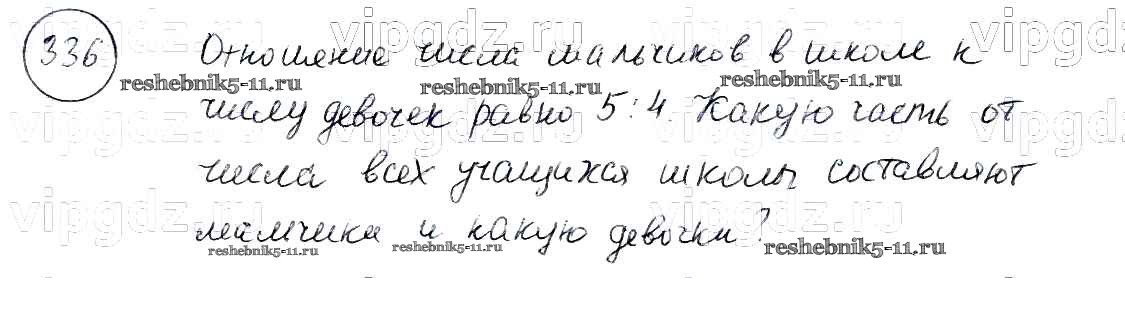 vipgdz.ru vipgdz.ru vipgdz.ru vipgdz.ru
336 Отношение числа мальчиков в школе к
reshebnik5-11.ru reshebnik5-11.ru reshebnik5-11.ru
числу девочек равно 5:4. Какую часть от
vipgdz.ru vipgdz.ru vipgdz.ru vipgdz
числа всех учащихся школы составляют
vipgdz.ru vipgdz.ru vipgdz.ru vipgdz
мальчики и какую девочки?
reshebnik5-11.ru reshebnik5-11.ru reshebnik5-11.ru